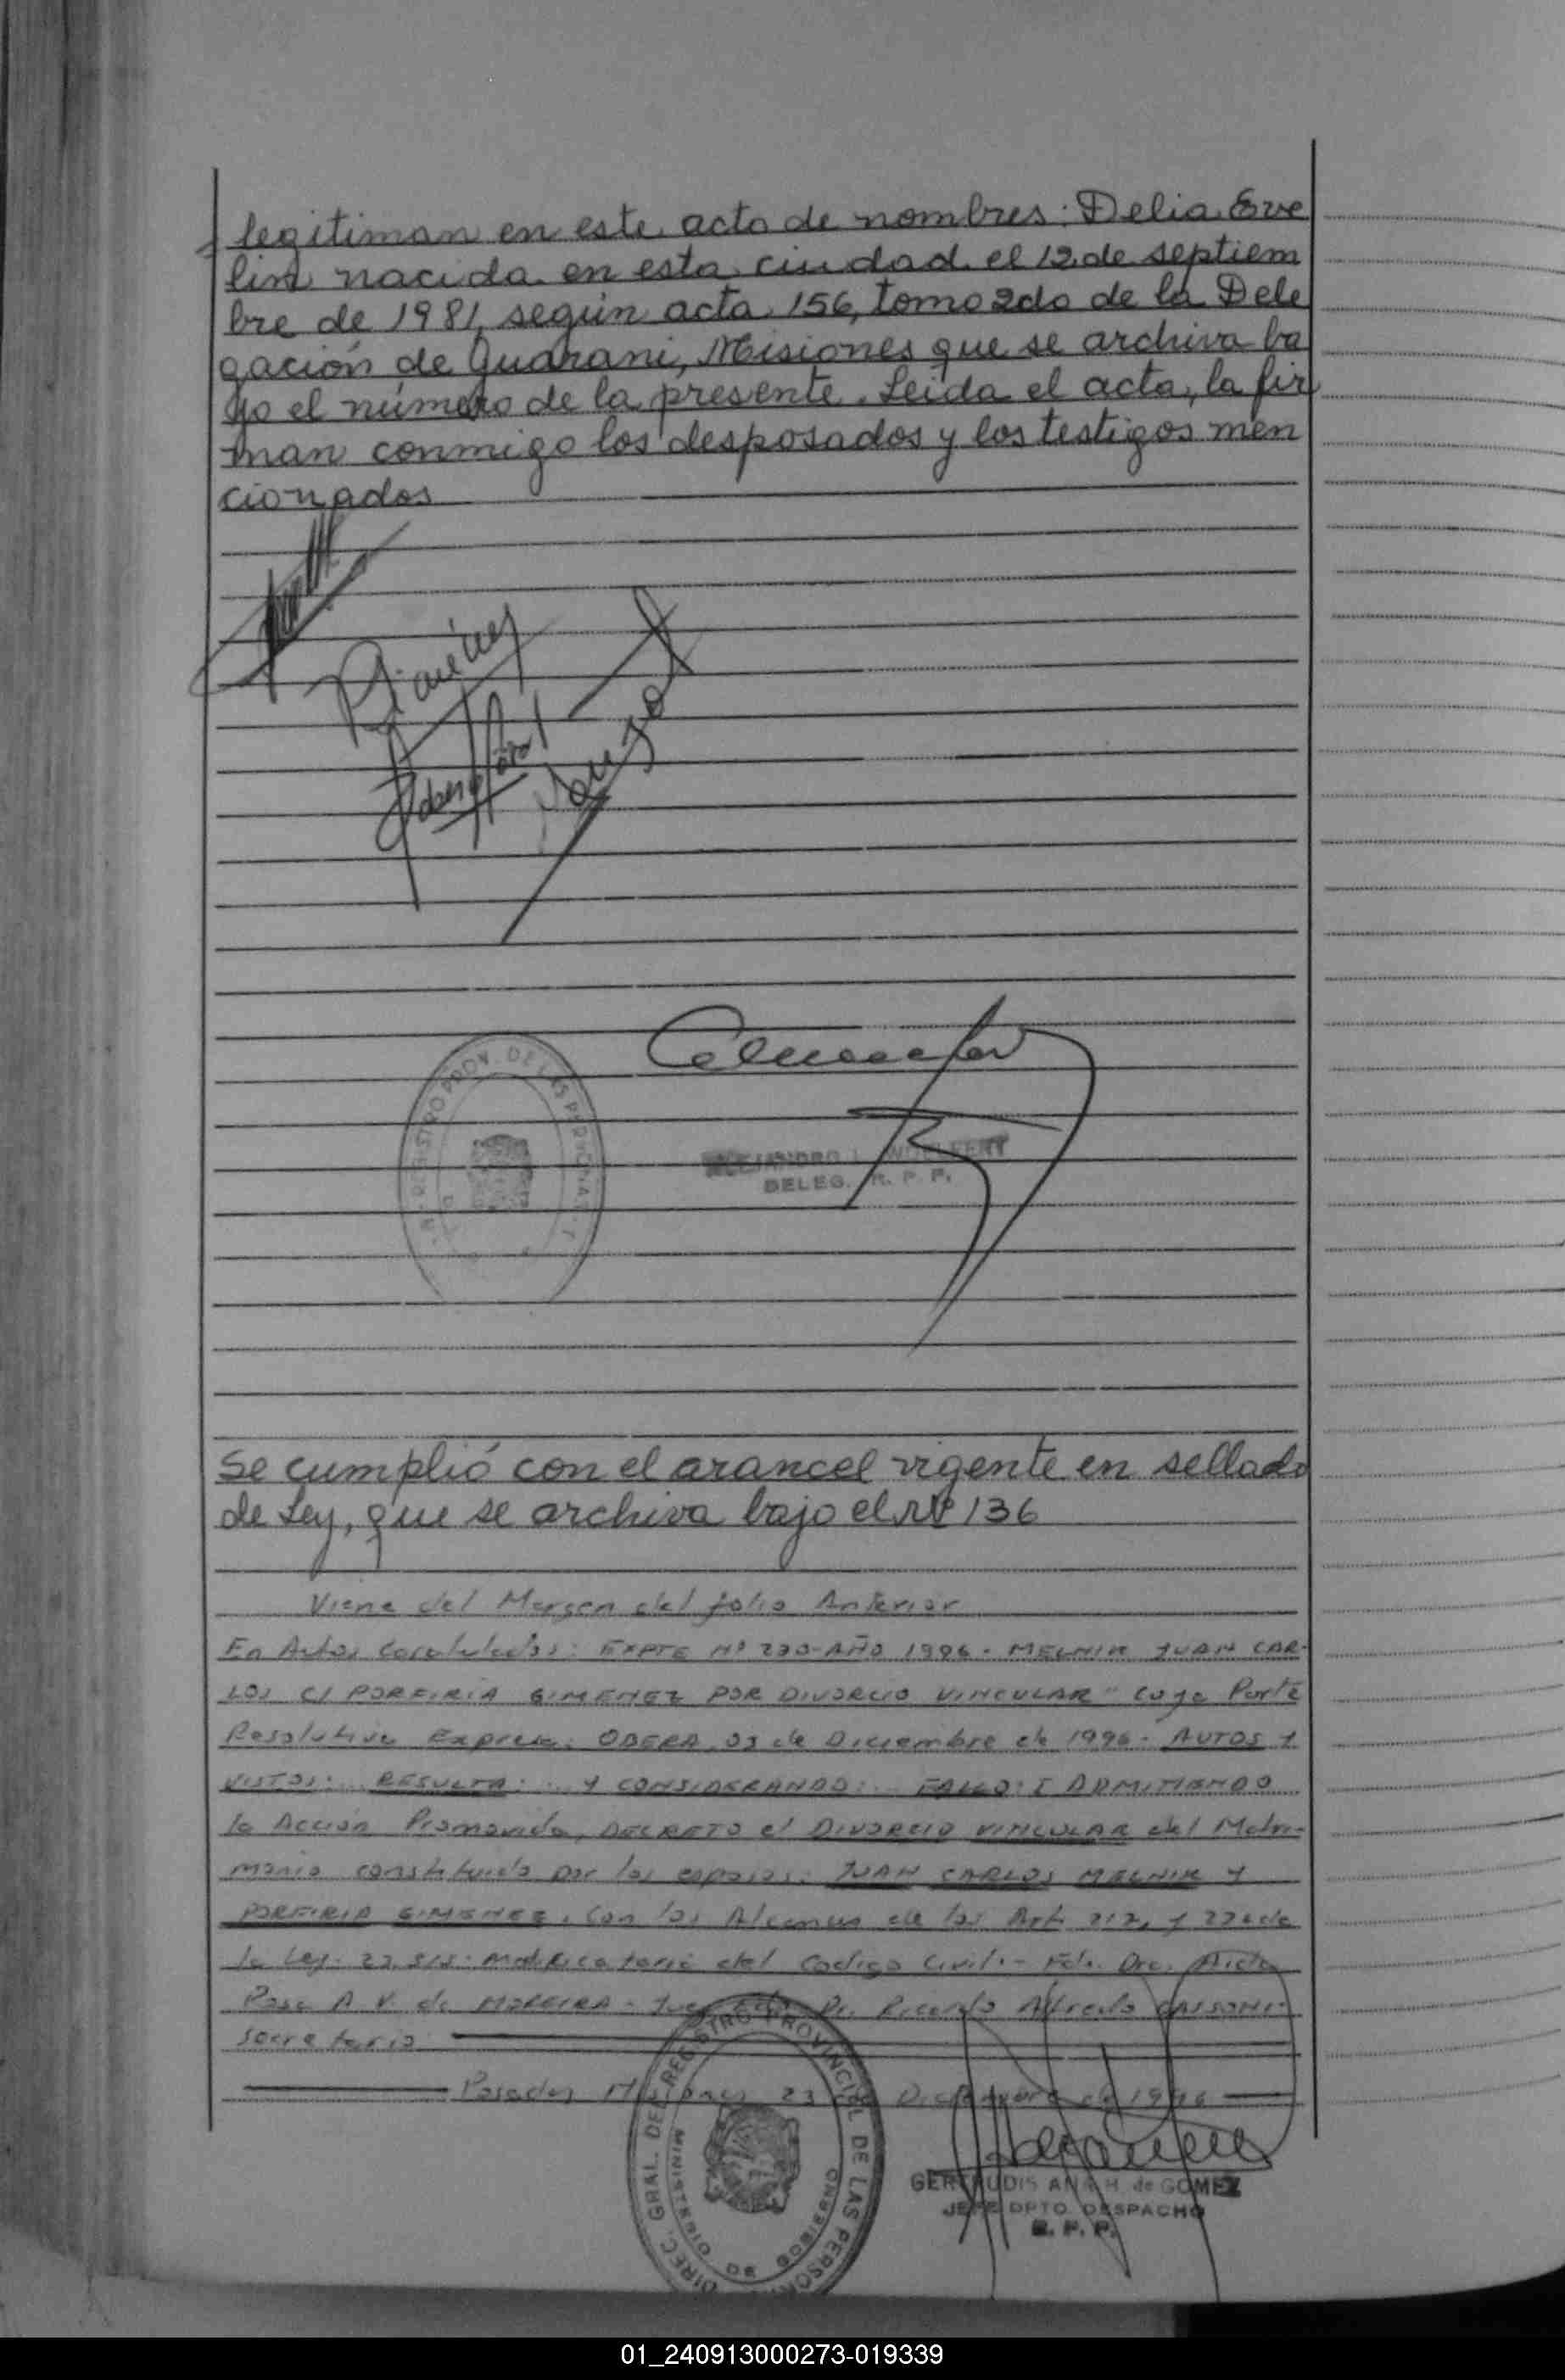 legitiman en este acto de nombres: Delia Eve
lin nacida en esta ciudad el 12 de septiem
bre de 1981, según acta 156, tomo 2do de la Dele
gación de Guarani, Misiones que se archiva ba
jo el número de la presente. Leida el acta, la fir
man conmigo los desposados y los testigos men
cionados
ALEJANDRO
DELEG. R. P. P.
Se cumplió con el arancel vigente en sellado
de Ley, que se archiva bajo el Nº 136
Viene del Margen del folio Anterior
En Autos Caratulados: EXPTE Nº 230-AÑO 1996 - MELNIK JUAN CAR-
LOS C/ PORFIRIA GIMENEZ POR DIVORCIO VINCULAR" cuya Parte
Resolutiva Expresa: OBERA, 03 de Diciembre de 1996 - AUTOS Y
VISTOS: RESULTA: .. Y CONSIDERANDO: .. FALLO: I ADMITIENDO
la Acción Promovida, DECRETO el DIVORCIO VINCULAR del Matri-
monio constituido por los esposos: JUAN CARLOS MELNIK Y
PORFIRIA GIMENEZ, Con los Alcances de los Art. 217, y de
la Ley. 23.515. Modificatoria del Codigo Civil. - Fdo. Dra.
Rosa A. V. de MOREIRA - Juez Fdo. Dr. Ricardo Alfredo CASSONI-
secretario
Posadas Misiones 23 de Diciembre de 1996
DIREC. GRAL. DEL REGISTRO PROVINCIAL DE LAS PERSONAS
MINISTERIO DE GOBIERNO
GERTRUDIS ANA H. de GOMEZ
JEFE DPTO. DESPACHO
R. P. P.
01_240913000273-019339